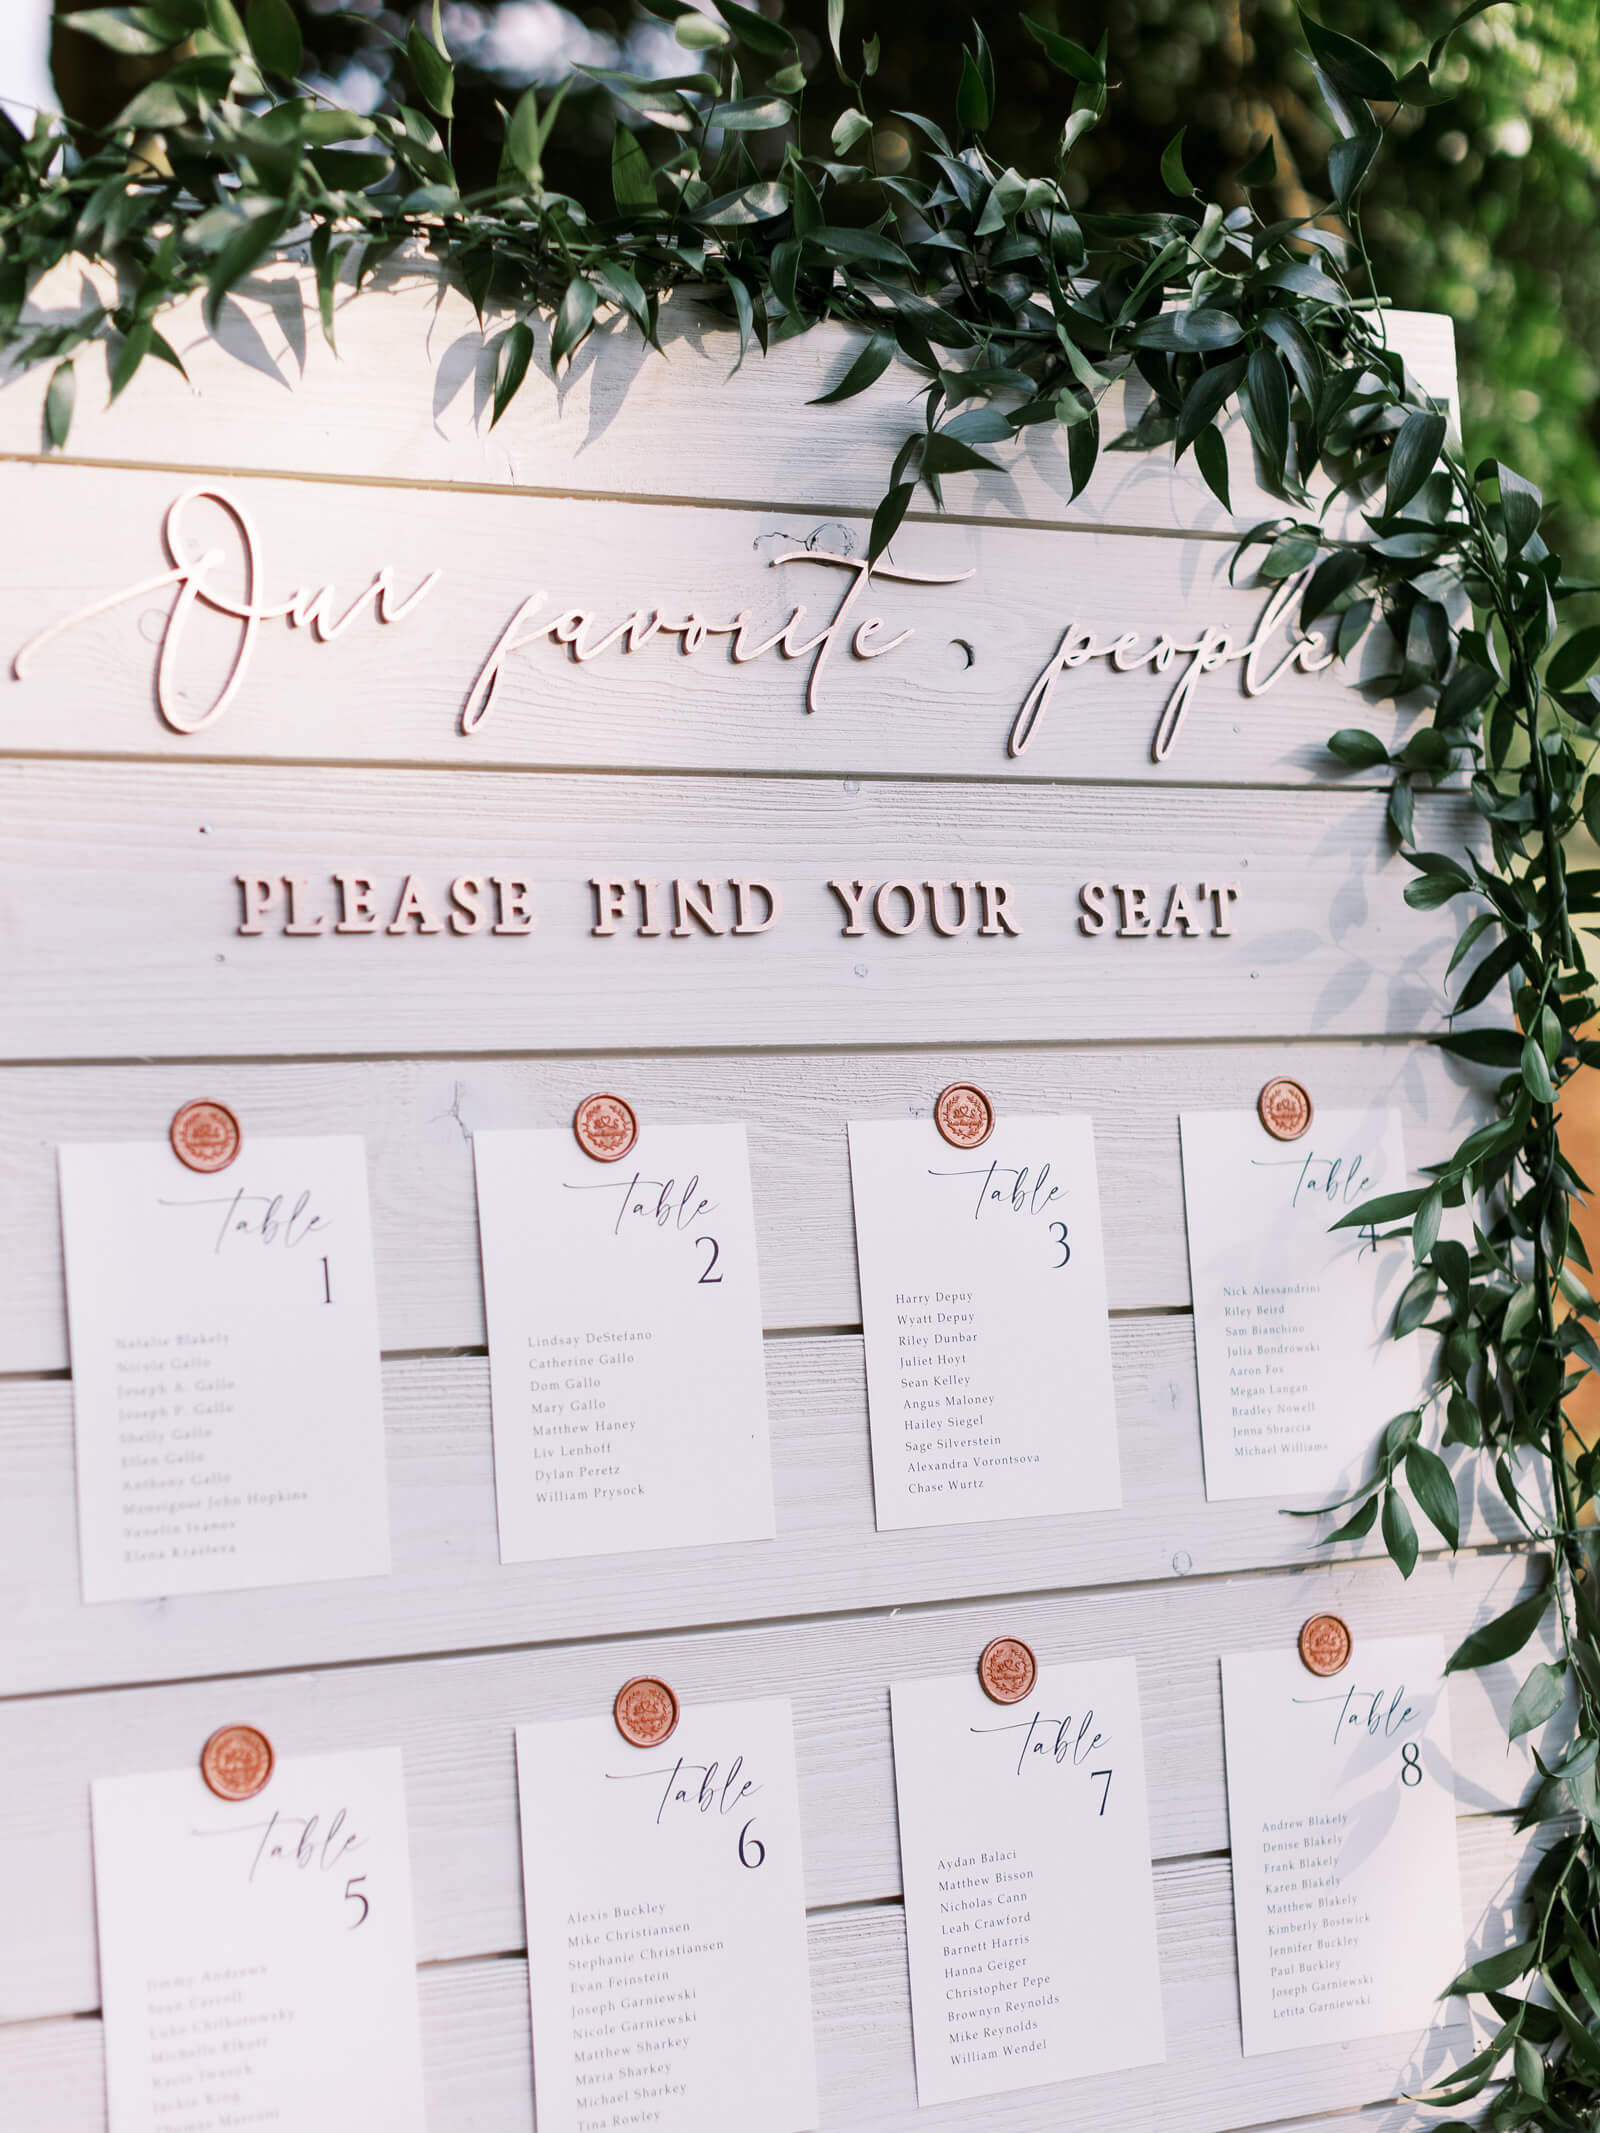 Our favorite people
PLEASE FIND YOUR SEAT
Table
1
Natalie Blakely
Nicole Gallo
Joseph A. Gallo
Joseph P. Gallo
Shelly Gallo
Ellen Gallo
Anthony Gallo
Monsignor John Hopkins
Ivanov
Elena Krasteva
Table
2
Lindsay DeStefano
Catherine Gallo
Dom Gallo
Mary Gallo
Matthew Haney
Liv Lenhoff
Dylan Peretz
William Prysock
Table
3
Harry Depuy
Wyatt Depuy
Riley Dunbar
Juliet Hoyt
Sean Kelley
Angus Maloney
Hailey Siegel
Sage Silverstein
Alexandra Vorontsova
Chase Wurtz
Table
4
Nick Alessandrini
Riley Beird
Sam Bianchino
Julia Bondrowski
Aaron Fox
Megan Langan
Bradley Nowell
Jenna Sbraccia
Michael Williams
Table
5
Jimmy Andrews
Sean Carroll
Luke Chilkotowsky
Michelle Elkott
Katie Iwasyk
Jackie King
Thomas Marconi
Table
6
Alexis Buckley
Mike Christiansen
Stephanie Christiansen
Evan Feinstein
Joseph Garniewski
Nicole Garniewski
Matthew Sharkey
Maria Sharkey
Michael Sharkey
Tina Rowley
Table
7
Aydan Balaci
Matthew Bisson
Nicholas Cann
Leah Crawford
Barnett Harris
Hanna Geiger
Christopher Pepe
Brownyn Reynolds
Mike Reynolds
William Wendel
Table
8
Andrew Blakely
Denise Blakely
Frank Blakely
Karen Blakely
Matthew Blakely
Kimberly Bostwick
Jennifer Buckley
Paul Buckley
Joseph Garniewski
Letita Garniewski